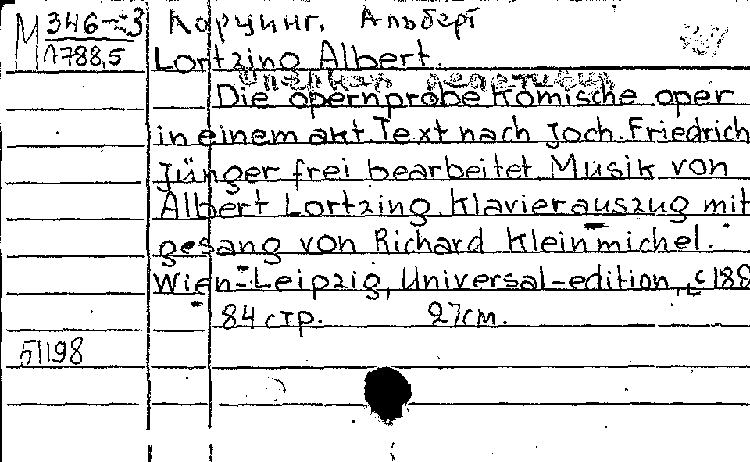 М 346-3 Лорцинг, Альберт
1788,5 Lortzing Albert.
Die opernprobe Komische oper
in einem akt. Text nach Joch. Friedrich
Jünger frei bearbeitet. Musik von
Albert Lortzing. Klavierauszug mit
gesang von Richard Kleinmichel.
Wien-Leipzig, Universal-edition, c188
84 стр. 27см.
51198